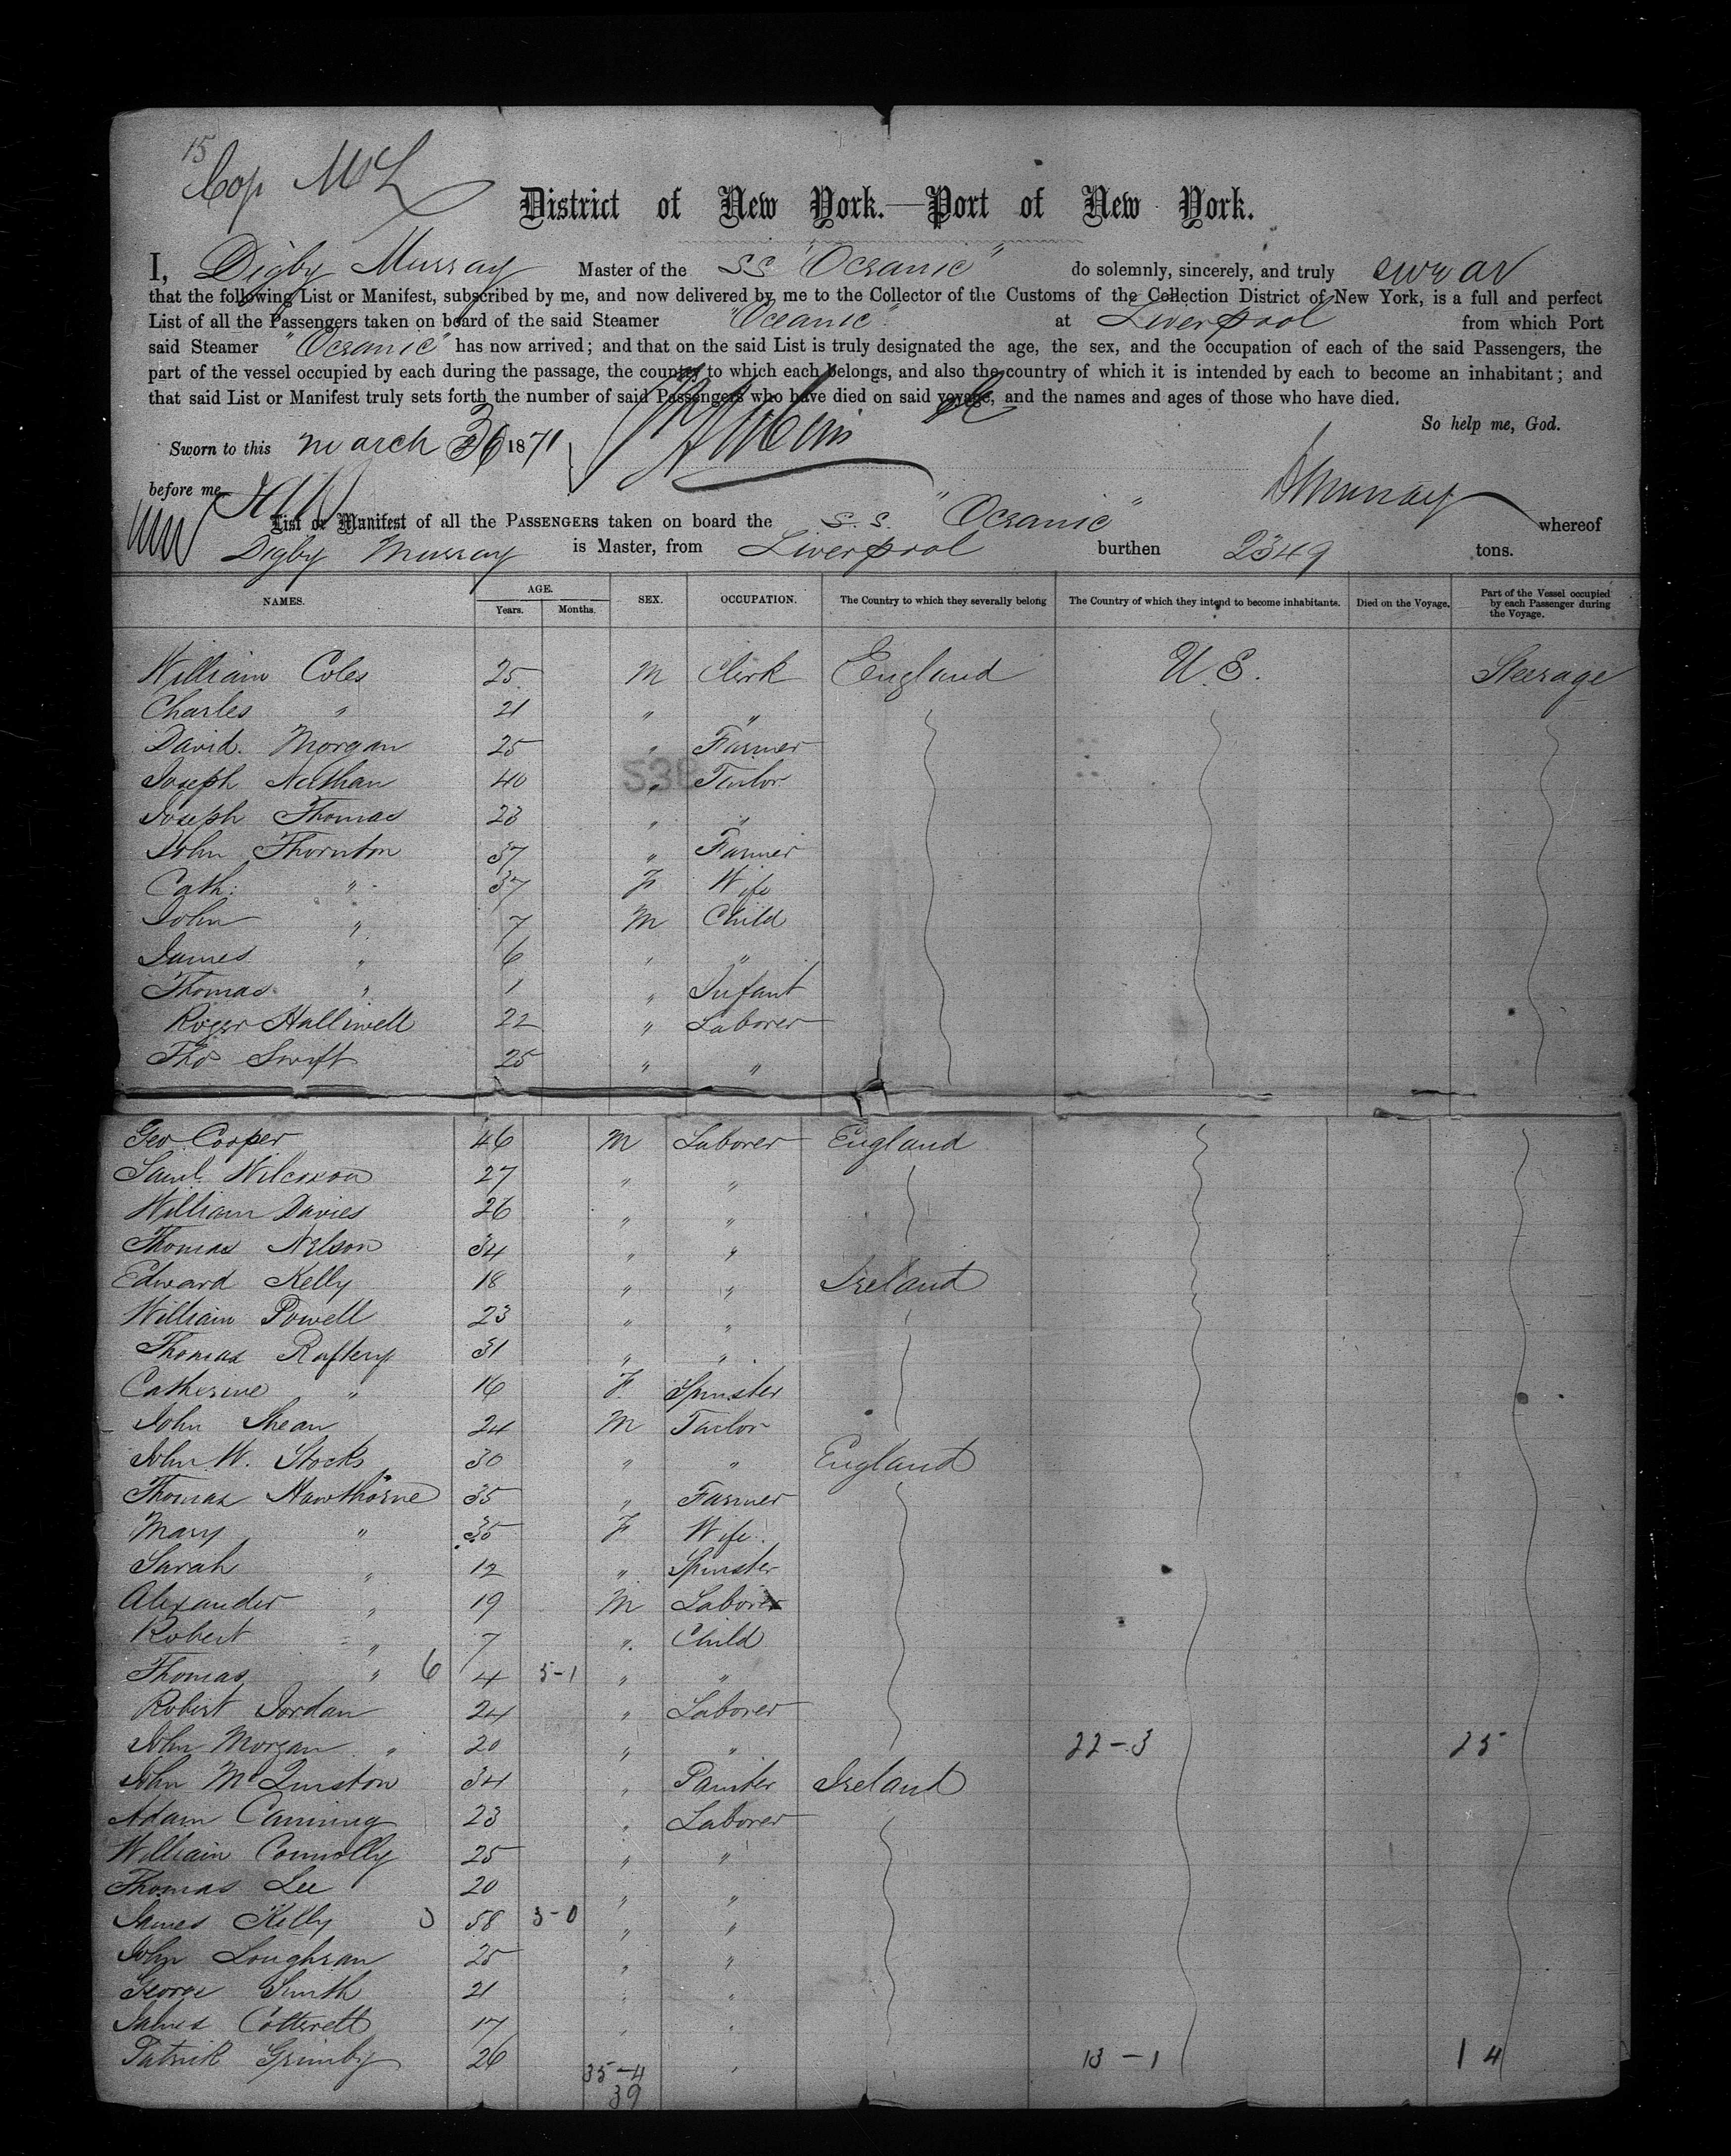 15
Cop
District of New York.—Port of New York.
I, Digby Murray Master of the SS "Oceanic" do solemnly, sincerely, and truly swear
that the following List or Manifest, subscribed by me, and now delivered by me to the Collector of the Customs of the Collection District of New York, is a full and perfect
List of all the Passengers taken on board of the said Steamer "Oceanic" at Liverpool from which Port
said Steamer "Oceanic" has now arrived; and that on the said List is truly designated the age, the sex, and the occupation of each of the said Passengers, the
part of the vessel occupied by each during the passage, the country to which each belongs, and also the country of which it is intended by each to become an inhabitant; and
that said List or Manifest truly sets forth the number of said Passengers who have died on said voyage, and the names and ages of those who have died.
So help me, God.
Sworn to this march 1871
before me
DMurray
List or Manifest of all the PASSENGERS taken on board the S.S. "Oceanic" whereof
Digby Murray is Master, from Liverpool burthen 2349 tons.
NAMES. AGE. Years. Months. SEX. OCCUPATION. The Country to which they severally belong The Country of which they intend to become inhabitants. Died on the Voyage. Part of the Vessel occupied by each Passenger during the Voyage.
William Coles 25 M Clerk England U.S. Steerage
Charles " 21 " "
David. Morgan 25 " Farmer
Joseph Nathan 40 " Tailor
Joseph Thomas 23 " "
John Thornton 37 " Farmer
Cath: " 37 F Wife
John " 7 M Child
James " 6 " "
Thomas " 1 " Infant
Roger Halliwell 22 " Laborer
Thos Swift 25 " "
Geo Cooper 46 M Laborer England
Saml Wilcoxon 27 " "
William Davies 26 " "
Thomas Nelson 34 " "
Edward Kelly 18 " " Ireland
William Powell 23 " "
Thomas Raftery 31 " "
Catherine " 16 F. Spinster
John Shean 24 M Tailor
John W. Stocks 30 " " England
Thomas Hawthorne 35 " Farmer
Mary " 35 F Wife
Sarah " 12 " Spinster
Alexander " 19 M Laborer
Robert " 7 " Child
Thomas " 6 4 5-1 " "
Robert Jordan 24 " Laborer
John Morgan " 20 " " 22-3 25
John McQuiston 34 " Painter Ireland
Adam Canning 23 " Laborer
William Connolly 25 " "
Thomas Lee 20 " "
James Kelly 58 3-0 " "
John Loughran 25 " "
George Smith 21 " "
James Cotterell 17 " "
Patrick Grimby 26 " 13-1 14
35-4
39